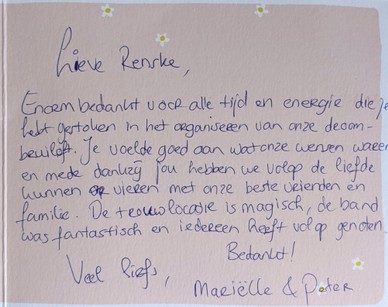 Lieve Renske,
Enorm bedankt voor alle tijd en energie die je
hebt gestoken in het organiseren van onze droom-
bruiloft. Je voelde goed aan wat onze wensen waren
en mede dankzij jou hebben we volop de liefde
kunnen vieren met onze beste vrienden en
familie. De trouwlocatie is magisch, de band
was fantastisch en iedereen heeft volop genoten.
Bedankt!
Veel liefs,
Mariëlle & Peter